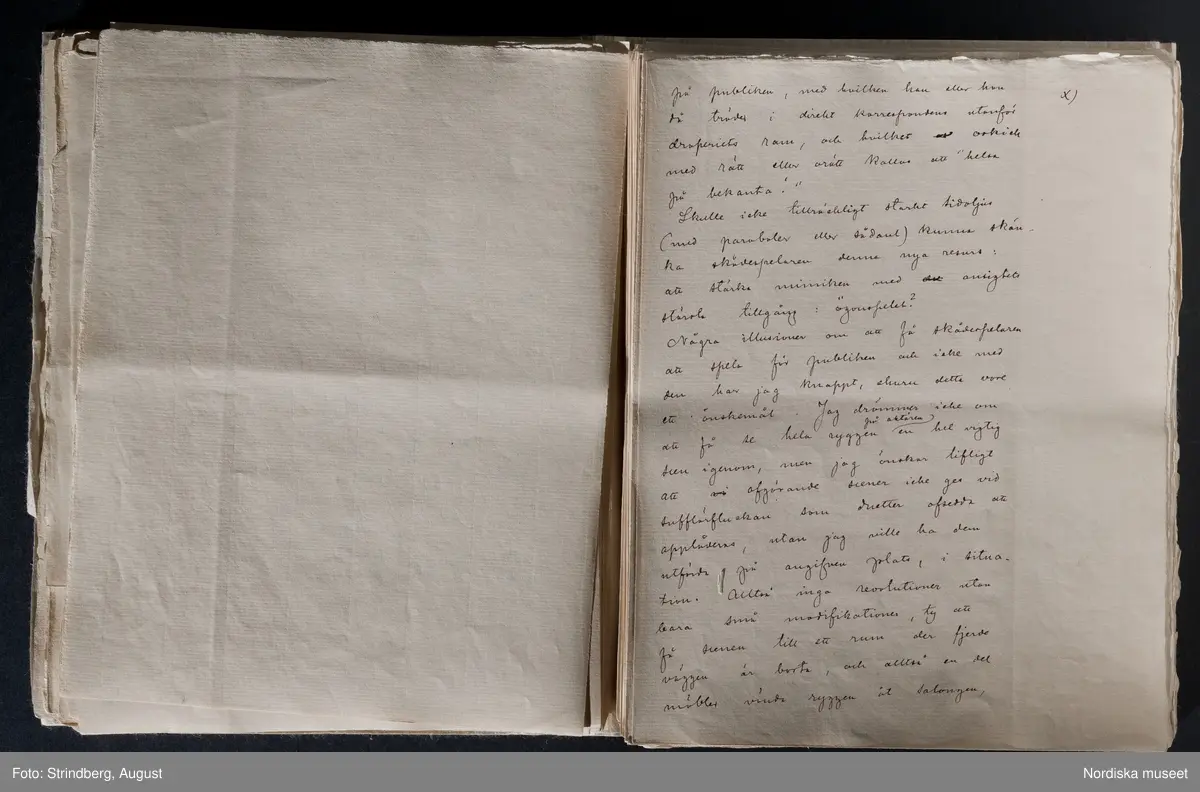 på publiken, med hvilken han eller hon
då trädes i direkt korrespondens utanför
draperiets ram, och hvilket oskick
med rätt eller orätt kallas att "helsa
på bekanta!"
Skulle icke tillräckligt starkt sidoljus
(med paraboler eller sådant) kunna skän-
ka skådespelaren denna nya resurs:
att stärka mimiken med ansigtets
största tillgång: ögonspelet?
Några illusioner om att få skådespelaren
att spela för publiken och icke med
den har jag knappt, ehuru detta vore
ett önskemål. Jag drömmer icke om
att få se hela ryggen på aktören en hel vigtig
scen igenom, men jag önskar lifligt
att afgörande scener icke ges vid
sufflörsluckan som duetter afsedda att
applåderas, utan jag ville ha dem
utförda på angifven plats, i situa-
tion. Alltså inga revolutioner utan
bara små modifikationer, ty att
få scenen till ett rum der fjerde
väggen är borta, och alltså en del
möbler vända ryggen åt salongen,
x)
Foto: Strindberg, August
Nordiska museet